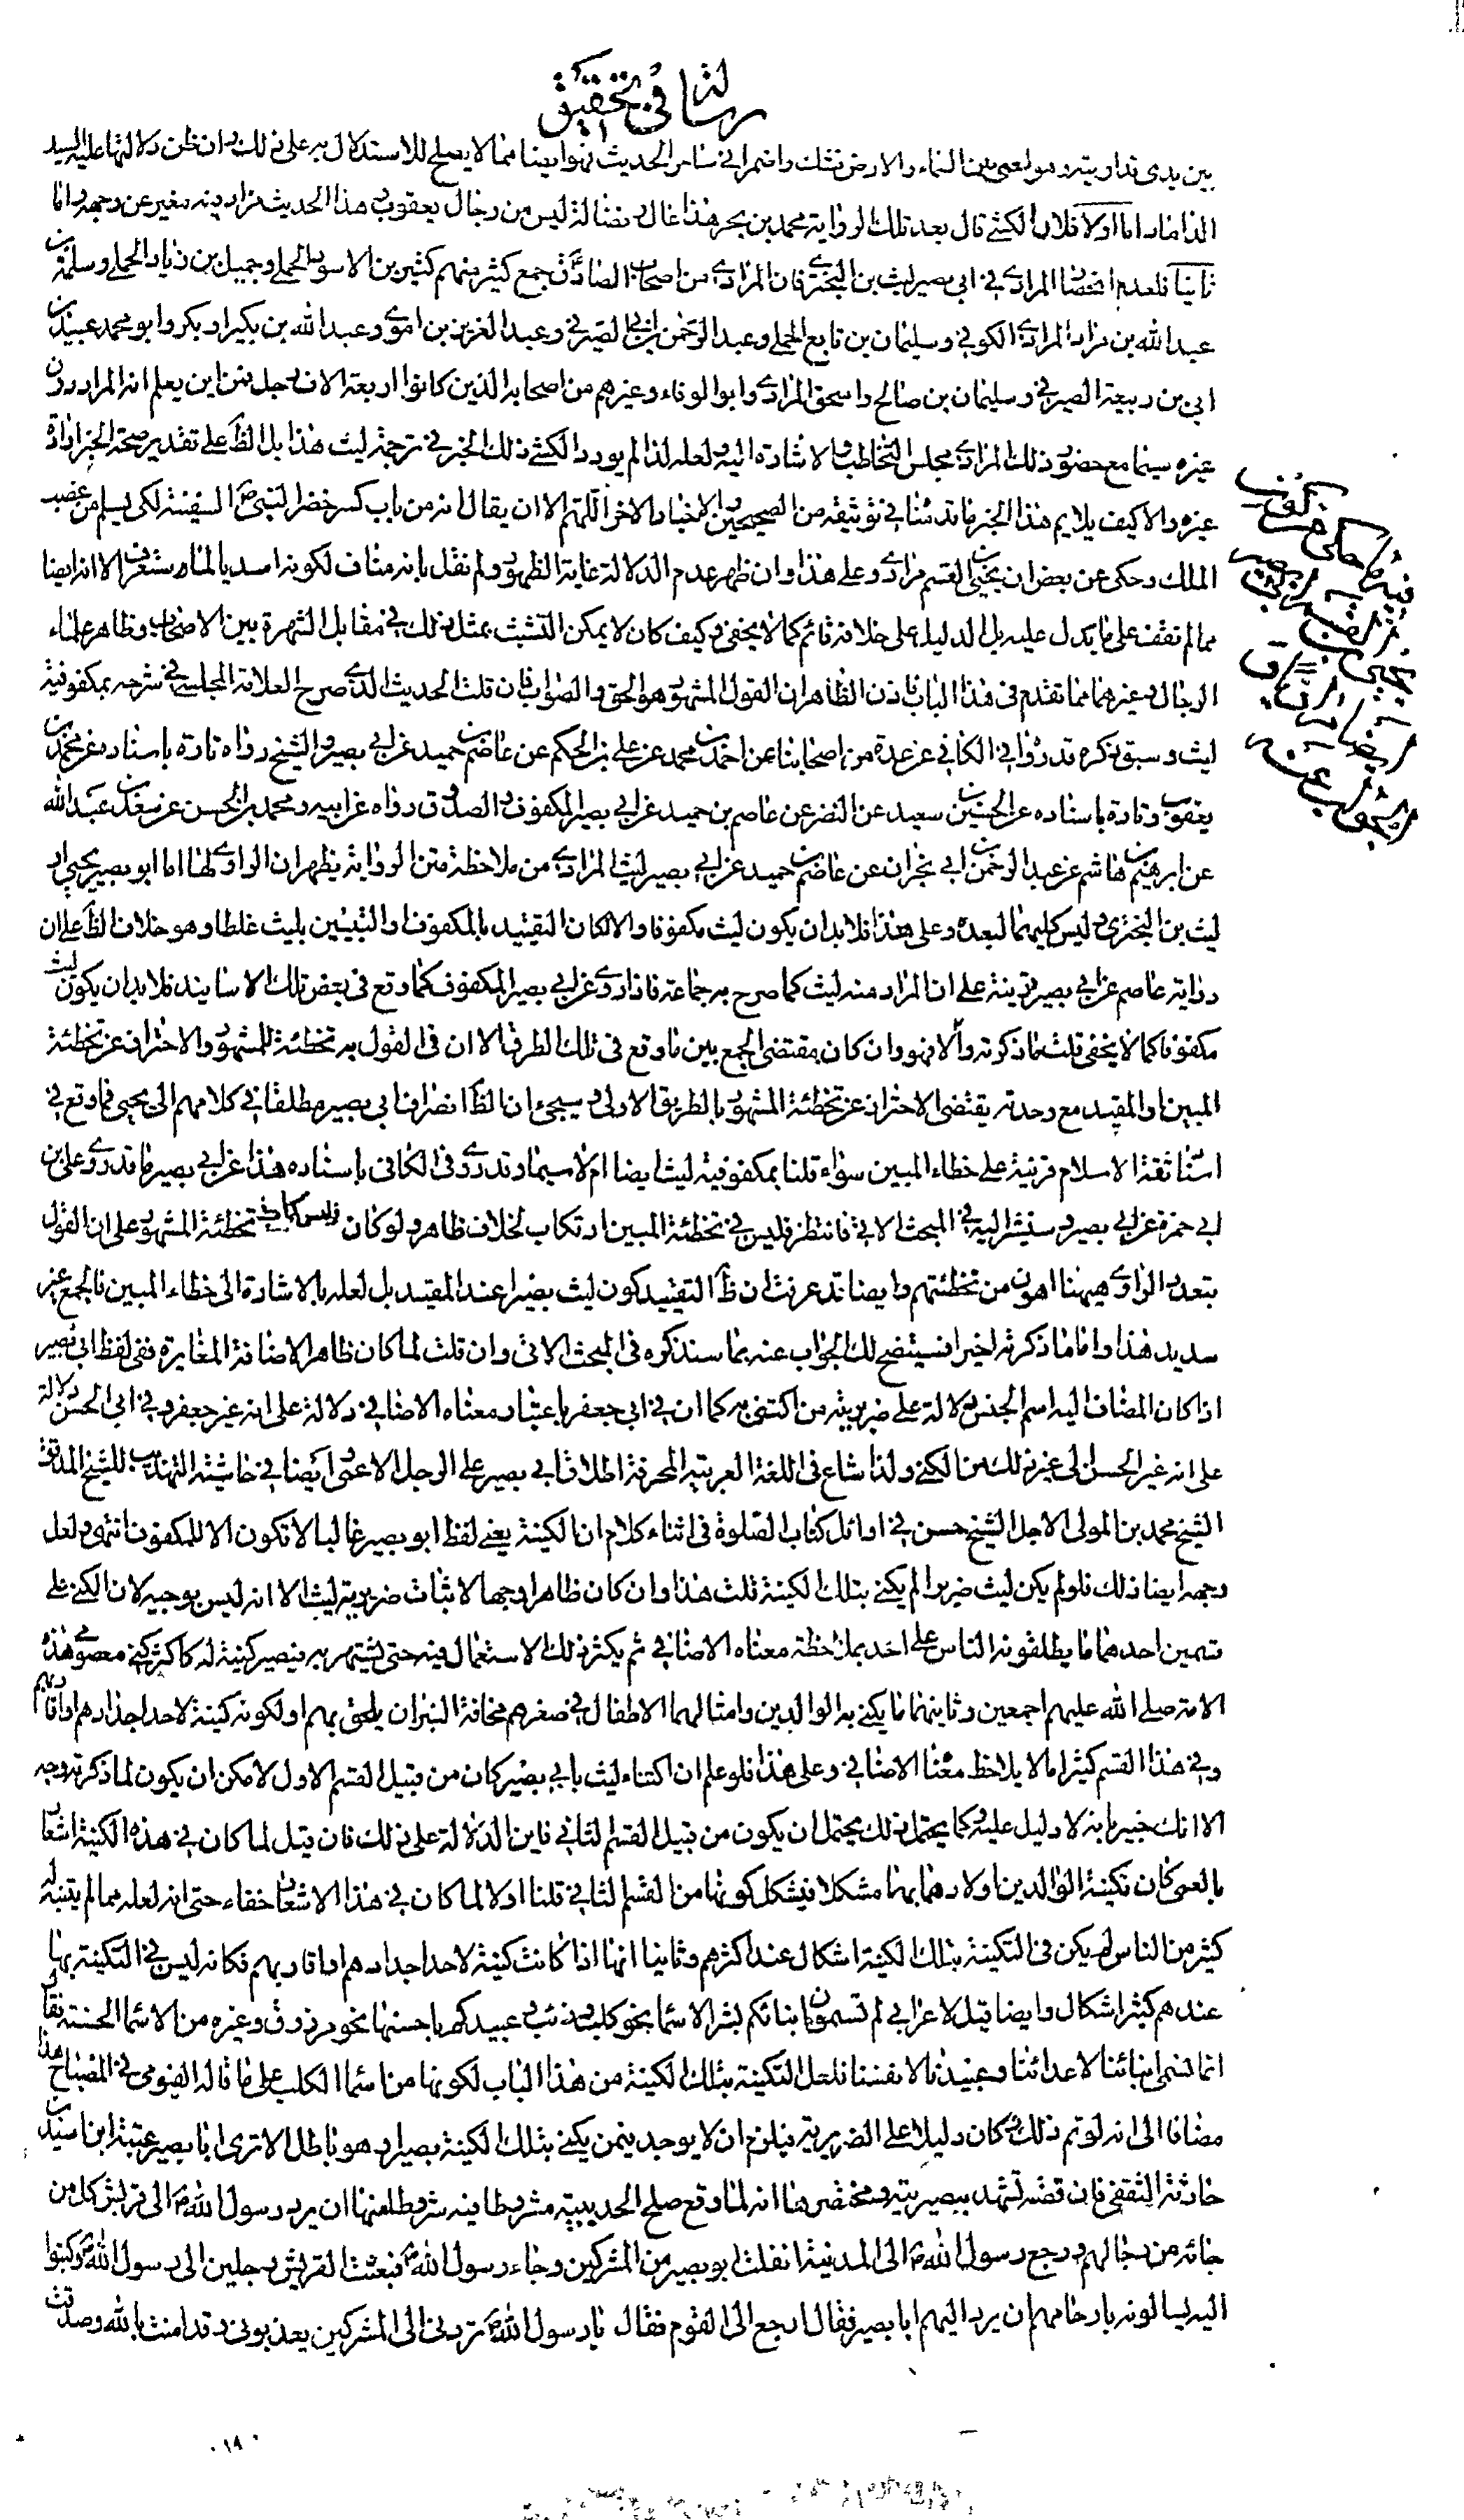 رسالة في تحقيق
بين يدي قد اوبته وهو اعمى بين السماء والارض فشك واضمر في سائر الحديث فهو ايضا مما لا يصلح للاستدلال به على ذلك وان ظن دلالتها عليه السيد
الداماد اما اولا فلان الكشي قال بعد تلك الرواية محمد بن بحر هذا غال وفضالة ليس من رجال يعقوب هذا الحديث مزاد فيه مغير عن وجهه واما
ثانيا فلعدم انحصار المرادي في ابي بصير ليث بن البختري فان المرادي من اصحاب الصادق جمع كثير منهم كثير بن الاسود الجملي وجميل بن زياد الجملي وسليمان بن
عبدالله بن مراد المرادي الكوفي وسليمان بن تابع الجملي وعبد الرحمن الصيرفي وعبد العزيز بن اموي وعبد الله بن بكير او بكر وابو محمد عبيد بن
ابي بن ربيعة الصيرفي وسليمان بن صالح واسحق المرادي وابو الوفاء وغيرهم من اصحابه الذين كانوا اربعة الاف رجل فمن اين يعلم انه المراد دون
غيره سيما مع حضور ذلك المرادي مجلس التخاطب والاشارة اليه ولعله لذا لم يورد الكشي ذلك الخبر في ترجمة ليث هذا بل الظ على تقدير صحة الخبر ارادة
غيره والا كيف يلايم هذا الخبر ما قدمنا في توثيقه من الصحيحين والاخبار الاخر اللهم الا ان يقال انه من باب كسر خضر النبي السفينة لكي يسلم من غضب
الملك وحكي عن بعض ان يحيى بن القسم مرادي وعلى هذا وان ظهر عدم الدلالة غاية الظهور ولم نقل بانه مناف لكونه اسديا لما ستعرف الا انه ايضا
مما لم نقف على ما يدل عليه بل الدليل على خلافه قائم كما لا يخفى وكيف كان لا يمكن التشبث بمثل ذلك في مقابل الشهرة بين الاصحاب وظاهر علماء
الرجال وغيرهما مما تقدم في هذا الباب فاذن الظاهر ان القول المشهور هو الحق والصواب فان قلت الحديث الذي صرح العلامة المجلسي في شرحه بمكفوفية
ليث وسبق ذكره قد رواه في الكافي عن عدة من اصحابنا عن احمد بن محمد عن علي بن الحكم عن عاصم بن حميد عن ابي بصير والشيخ رواه تارة باسناده عن محمد بن
يعقوب وتارة باسناده عن الحسين بن سعيد عن النضر عن عاصم بن حميد عن ابي بصير المكفوف والصدوق رواه عن ابيه ومحمد بن الحسن عن سعد بن عبد الله
عن ابرهيم بن هاشم عن عبد الرحمن بن ابي نجران عن عاصم بن حميد عن ابي بصير ليث المرادي من ملاحظة متن الرواية يظهر ان الراوي لها اما ابو بصير يحيى او
ليث بن البختري وليس كليهما لبعده وعلى هذا فلا بد ان يكون ليث مكفوفا والا لكان التقييد بالمكفوف او التبيين بليث غلطا وهو خلاف الظ على ان
رواية عاصم عن ابي بصير قرينة على ان المراد منه ليث كما صرح به جماعة فاذا روى عن ابي بصير المكفوف كما وقع في بعض تلك الاسانيد فلا بد ان يكون ليث
مكفوفا كما لا يخفى قلت ما ذكرته اولا فهو وان كان مقتضى الجمع بين ما وقع في تلك الطرق الا ان في القول به تخطئة للمشهور والاحتراز عن تخطئة
المبين او المقيد مع وحدته يقتضي الاحتراز عن تخطئة المشهور بالطريق الاولى وسيجئ ان الظ انصراف ابي بصير مطلقا في كلامهم الى يحيى فما وقع في
اسناد ثقة الاسلام قرينة على خطاء المبين سواء قلنا بمكفوفية ليث ايضا ام لا سيما وقد روى في الكافي باسناده هذا عن ابي بصير ما قد روى علي بن
ابي حمزة عن ابي بصير وسنشير اليه في المبحث الاتي فانتظر فليس في تخطئة المبين ارتكاب لخلاف ظاهر ولو كان فليس كما في تخطئة المشهور على ان القول
بتعدد الراوي هيهنا اهون من تخطئتهم وايضا قد عرفت ان ظ التقييد كون ليث بصيرا عند المقيد بل لعله بالاشارة الى خطاء المبين فالجمع غير
سديد هذا واما ما ذكرته اخيرا فسيتضح لك الجواب عنه بما سنذكره في المبحث الاتي وان قلت لما كان ظاهر الاضافة المغايرة ففي لفظ ابي بصير
اذا كان المضاف اليه اسم الجنس دلالة على ضريرية من اكتنى به كما ان في ابي جعفر باعتبار معناه الاضافي دلالة على انه غير جعفر وفي ابي الحسن دلالة
على انه غير الحسن الى غير ذلك من الكنى ولذا شاع في اللغة العربية المحرفة اطلاق ابي بصير على الرجل الاعمى ايضا في حاشية التهذيب للشيخ المدقق
الشيخ محمد بن المولى الاجل الشيخ حسن في اوائل كتاب الصلوة في اثناء كلام ان الكنية يعني لفظ ابو بصير غالبا لا تكون الا للمكفوف انتهى ولعل
وجهه ايضا ذلك فلو لم يكن ليث ضريرا لم يكنى بتلك الكنية قلت هذا وان كان ظاهرا وجها لاثبات ضريرية ليث الا انه ليس بوجيه لان الكنى على
قسمين احدهما ما يطلقونه الناس على احد بملاحظة معناه الاضافي ثم يكثر ذلك الاستعمال فيه حتى يشتهر به فيصير كنية له كاكثر كنى معصومي هذه
الامة صلى الله عليهم اجمعين وثانيهما ما يكني به الوالدين وامثالهما الاطفال في صغرهم مخافة النبز ان يلحق بهم او لكونه كنية لاحد اجدادهم او اقاربهم
وفي هذا القسم كثيرا ما لا يلاحظ معنا الاضافي وعلى هذا فلو علم ان اكتناء ليث بابي بصير كان من قبيل القسم الاول لامكن ان يكون لما ذكرته وجه
الا انك خبير بانه لا دليل عليه كما يحتمل ذلك يحتمل ان يكون من قبيل القسم الثاني فاين الدلالة على ذلك فان قيل لما كان في هذه الكنية اشعار
بالعمى كان تكنية الوالدين اولادهما بها مشكلا فيشكل كونها من القسم الثاني قلنا اولا لما كان في هذا الاشعار خفاء حتى انه لعله مما لم يتنبه له
كثير من الناس لم يكن في التكنية بتلك الكنية اشكال عند اكثرهم وثانيا انها اذا كانت كنية لاحد اجدادهم او اقاربهم فكانه ليس في التكنية بها
عندهم كثير اشكال وايضا قيل لاعرابي لم تسمون ابنائكم بشر الاسماء نحو كلب وذئب وعبيدكم باحسنها نحو مرزوق وغيره من الاسماء الحسنة فقال
انما نسمي ابنائنا لاعدائنا وعبيدنا لانفسنا فلعل التكنية بتلك الكنية من هذا الباب لكونها من اسماء الكلب على ما قاله الفيومي في المصباح هذا
مضافا الى انه لو تم ذلك وكان دليلا على الضريرية فيلزم ان لا يوجد فيمن يكنى بتلك الكنية بصيرا وهو باطل الا ترى ابا بصير عتبة ابن اسيد بن
حارثة الثقفي فان قصته تشهد ببصيريته ومختصرها انه لما وقع صلح الحديبية مشروطا فيه شروط منها ان يرد رسول الله الى قريش كل من
جائه من رجالهم ورجع رسول الله الى المدينة انفلت ابو بصير من المشركين وجاء رسول الله فبعثت القريش رجلين الى رسول الله وكتبوا
اليه يسالونه بارحامهم ان يرد اليهم ابا بصير فقال ارجع الى القوم فقال يا رسول الله تردني الى المشركين يعذبوني وقد امنت بالله وصدقت
ايضا
٠١٨٠